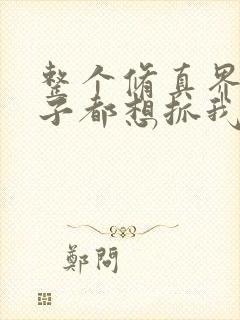 整个脩真界
子都想抓我
鄭問